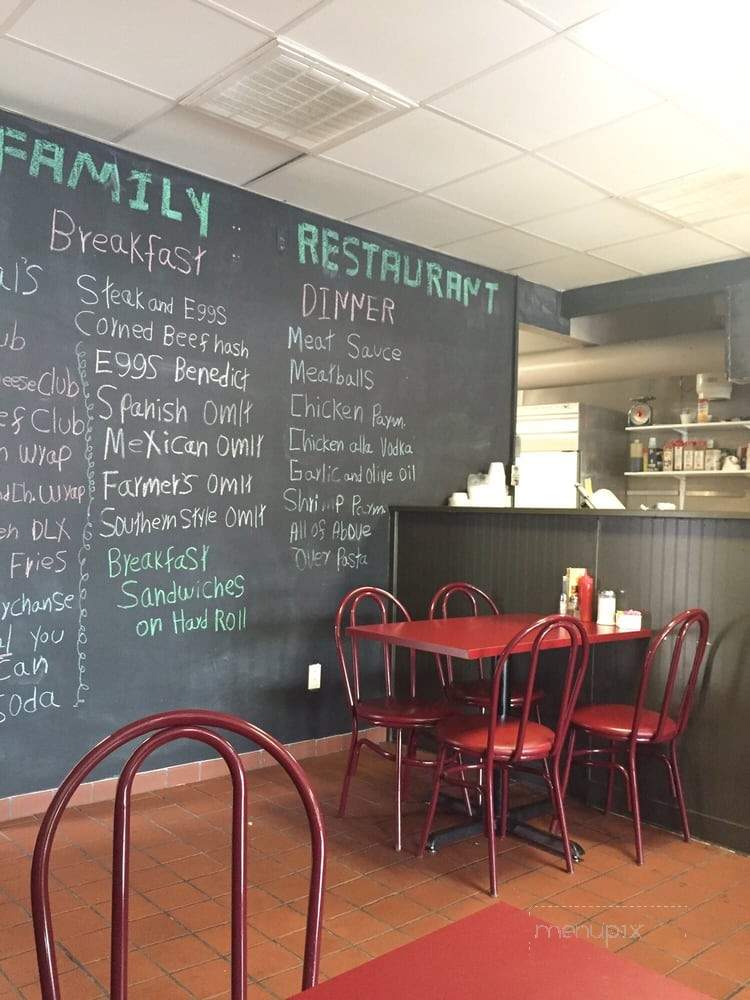 FAMILY
RESTAURANT
Breakfast
Steak and Eggs
Corned Beef hash
Eggs Benedict
Spanish Omlt
Mexican Omlt
Farmer's Omlt
Southern Style Omlt
Breakfast
Sandwiches
on Hard Roll
DINNER
Meat Sauce
Meatballs
Chicken Parm.
Chicken alla Vodka
Garlic and Olive Oil
Shrimp Parm.
All of Above
Over Pasta
Club
Wrap
DLX
Fries
You
Can
Soda
menupix